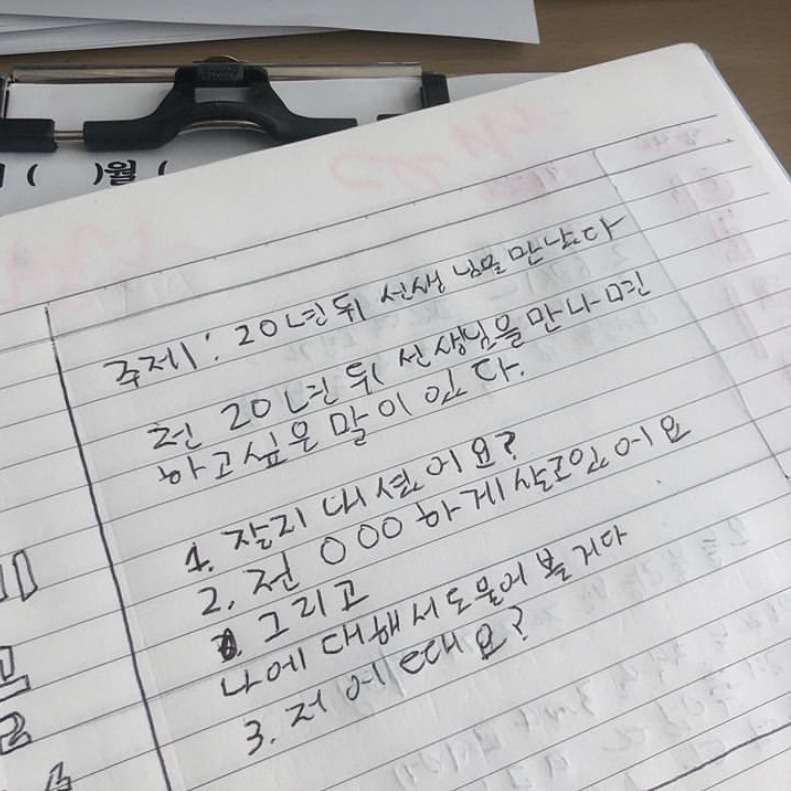 )월 (
주제: 20년뒤 선생님을 만났다
전 20년뒤 선생님을 만나면
하고싶은 말이 있다.
1. 잘지내셨어요?
2. 전 000하게 살고있어요
그리고
나에 대해서도 물어 볼거다
3. 저 어때요?